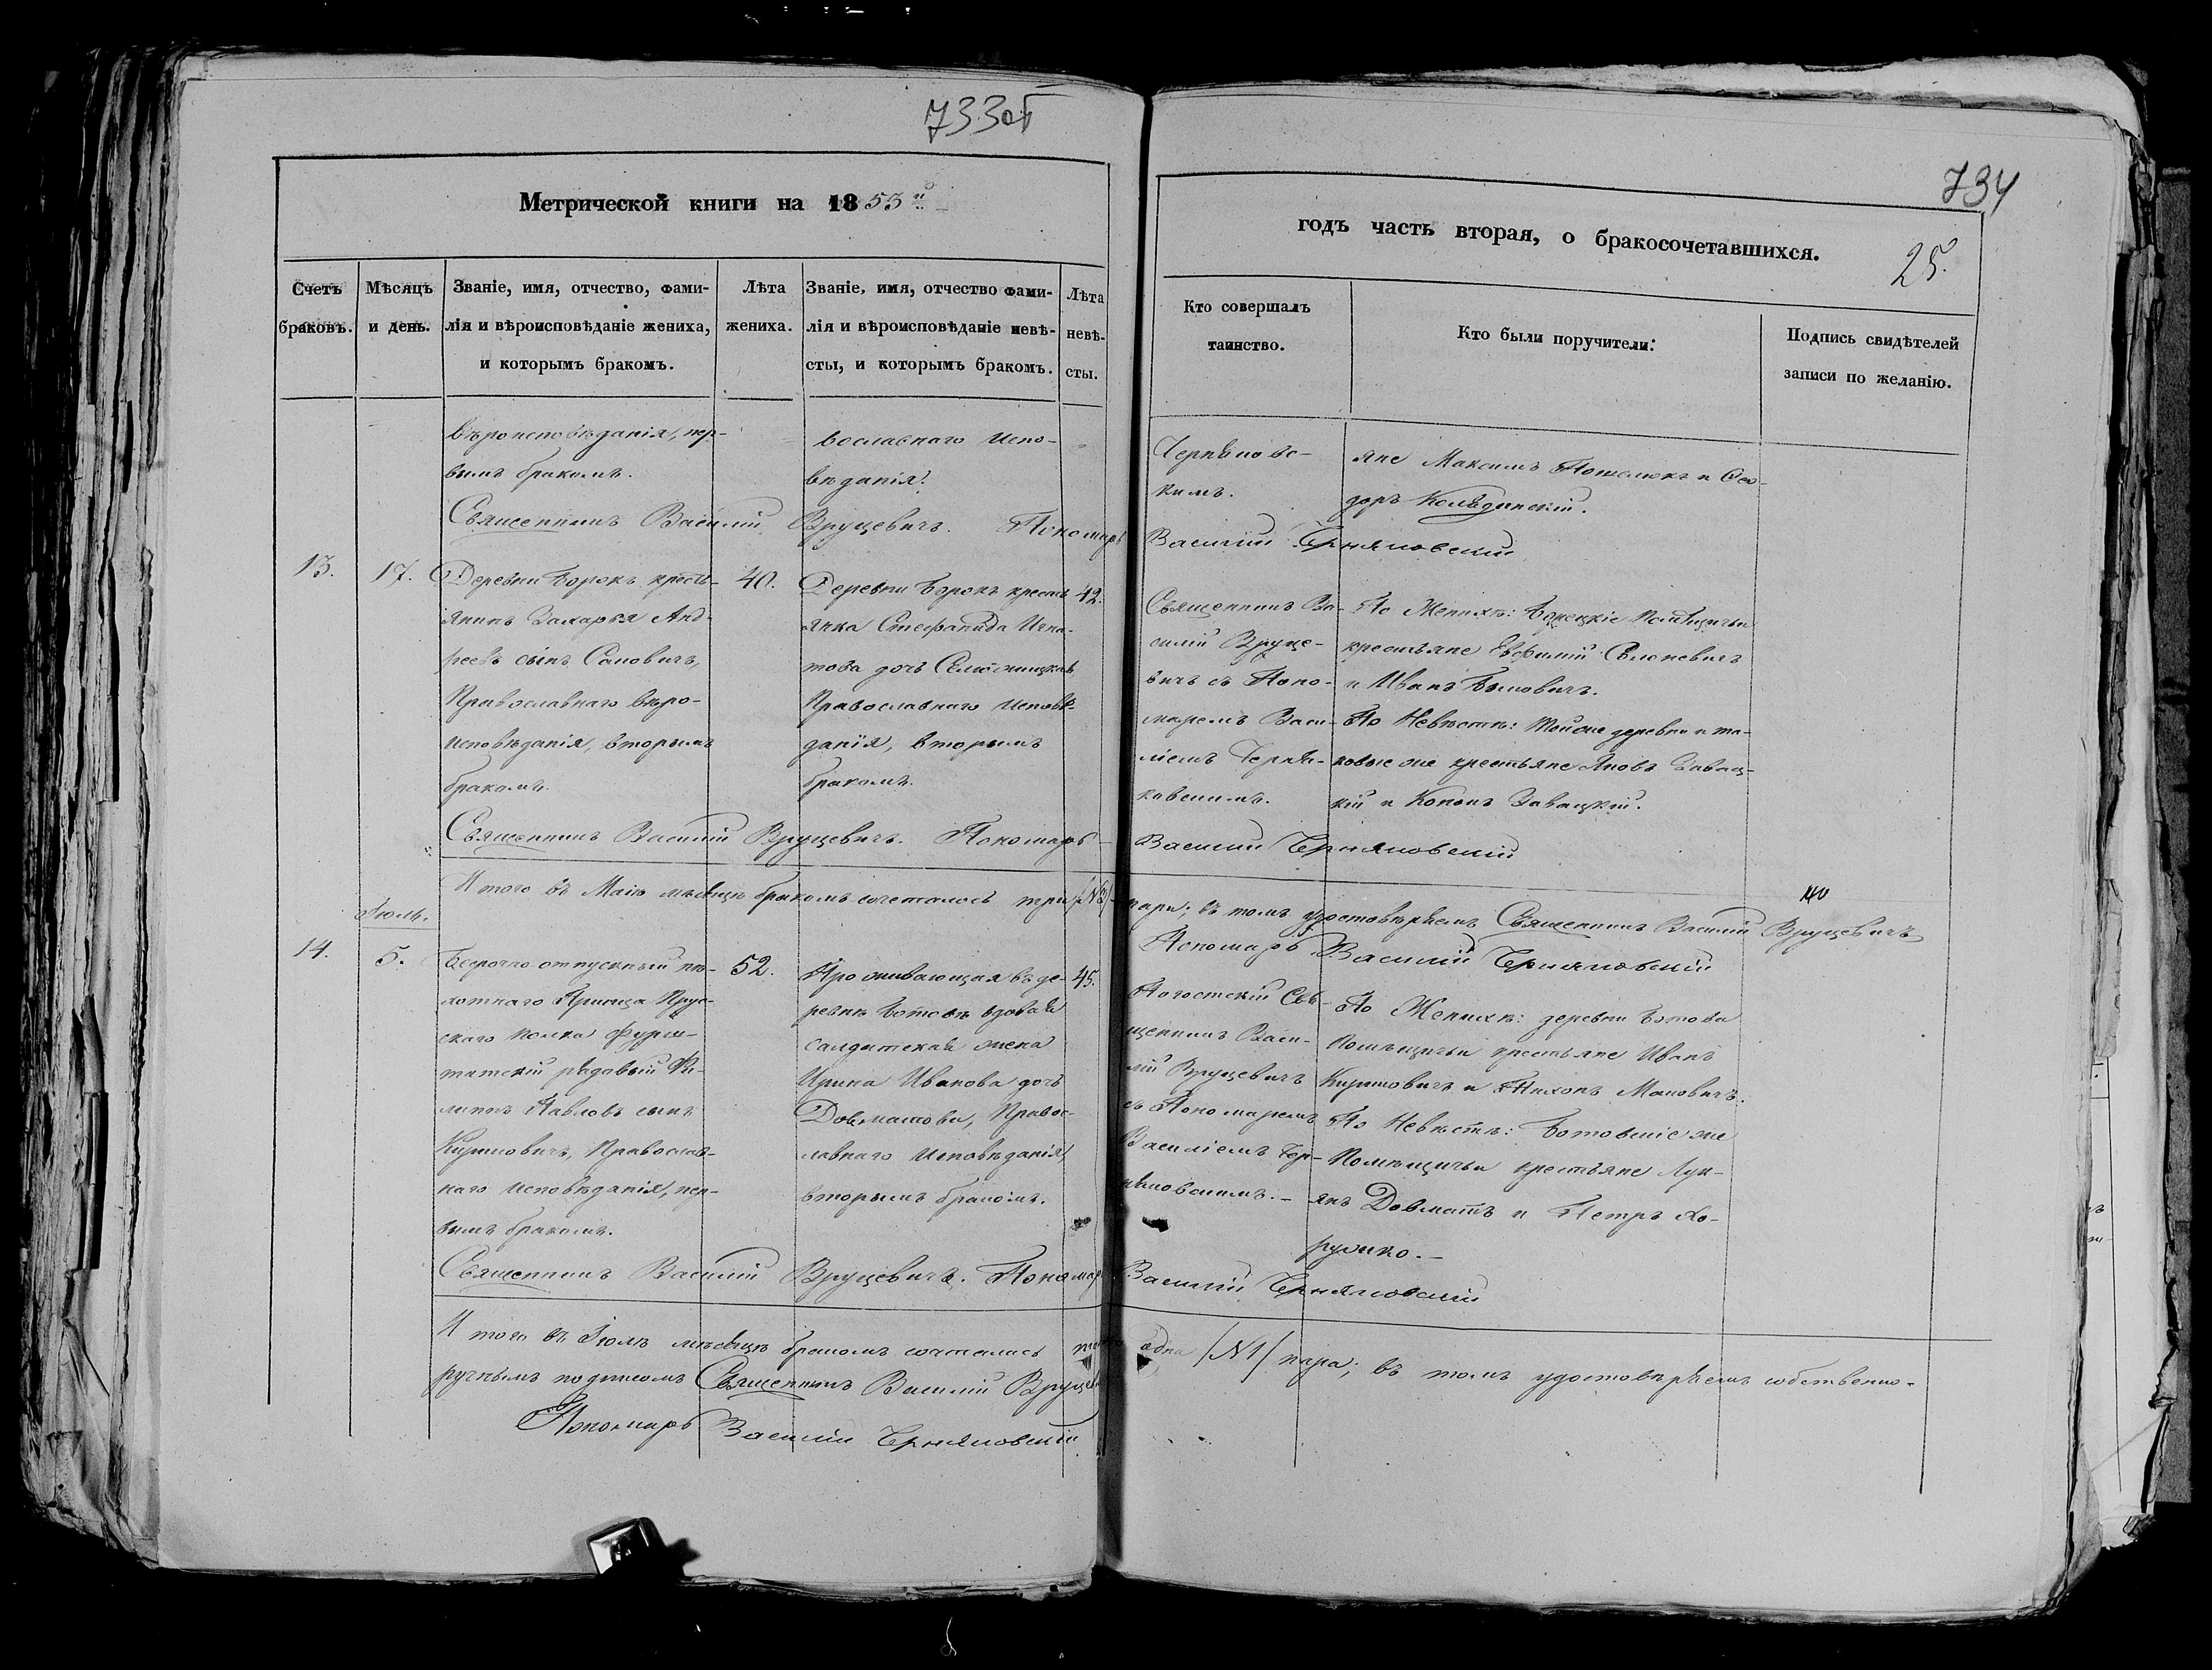 733об
734
Метрической книги на 1853й
годъ часть вторая, о бракосочетавшихся.
25.
Счетъ браковъ.
Мѣсяцъ и день.
Званіе, имя, отчество, фами-
лія и вѣроисповѣданіе жениха,
и которымъ бракомъ.
Лѣта
жениха.
Званіе, имя, отчество фами-
лія и вѣроисповѣданіе невѣ-
сты, и которымъ бракомъ.
Лѣта
невѣ-
сты.
Кто совершалъ
таинство.
Кто были поручители:
Подпись свидѣтелей
записи по желанію.
вѣроисповѣданія, пер-
вымъ бракомъ.
вославнаго испо-
вѣданія.
Черняковс-
кимъ.
яне Максимъ и Ѳео-
доръ
Священникъ Василій Вруцевичъ. Пономарь Василий Черняковский
13.
17.
Деревни Борокъ кресть-
янинъ Захарья Анд-
реевъ сынъ Сановичъ,
Православнаго вѣро-
исповѣданія, вторымъ
бракомъ.
40.
Деревни Борокъ кресть
янка Стефанида Игна-
това дочь
Православнаго исповѣ-
данія, вторымъ
бракомъ.
42.
Священникъ Ва-
силій Вруце-
вичъ съ Поно-
маремъ Васи-
ліемъ Черня-
ковскимъ.
По Женихѣ: помѣщичьи
крестьяне Евфимій
и Иванъ
По Невѣстѣ: Той же деревни и та-
ковые же крестьяне Яковъ Завац-
кій и Кононъ Завацкій.
Священникъ Василій Вруцевичъ. Пономарь Василий Черняковский
Итого въ Маіѣ мѣсяцѣ бракомъ сочеталось три /№3/ пары; въ томъ удостовѣряемъ Священникъ Василій Вруцевичъ
Пономарь Василий Черняковский
Іюль.
14.
5.
Безсрочно отпускный пѣ-
хотнаго Принца Прус-
скаго полка фурш-
татскій рядовый Фи-
липпъ Павловъ сынъ
Кириловичъ, Православ-
наго исповѣданія, пер-
вымъ бракомъ.
52.
Проживающая въ де-
ревнѣ Ботовѣ вдовая
салдатская жена
Ирина Иванова дочь
Довматова, Правос-
лавнаго исповѣданія,
вторымъ бракомъ.
45.
Погостскій Свя-
щенникъ Васи-
лій Вруцевичъ
съ Пономаремъ
Василіемъ Чер-
няковскимъ. –
По Женихѣ: деревни Ботова
помѣщичьи крестьяне Иванъ
Кириловичъ и Тихонъ Мановичъ.
По Невѣстѣ: Ботовскіе же
помѣщичьи крестьяне Лук-
янъ Довматъ и Петръ Хо-
ружко. –
Священникъ Василій Вруцевичъ. Пономарь Василий Черняковский
Итого въ Іюлѣ мѣсяцѣ бракомъ сочталась одна /№1/ пара; въ томъ удостовѣряемъ собственно-
ручнымъ подписомъ Священникъ Василій Вруцевичъ
Пономарь Василии Черняковский